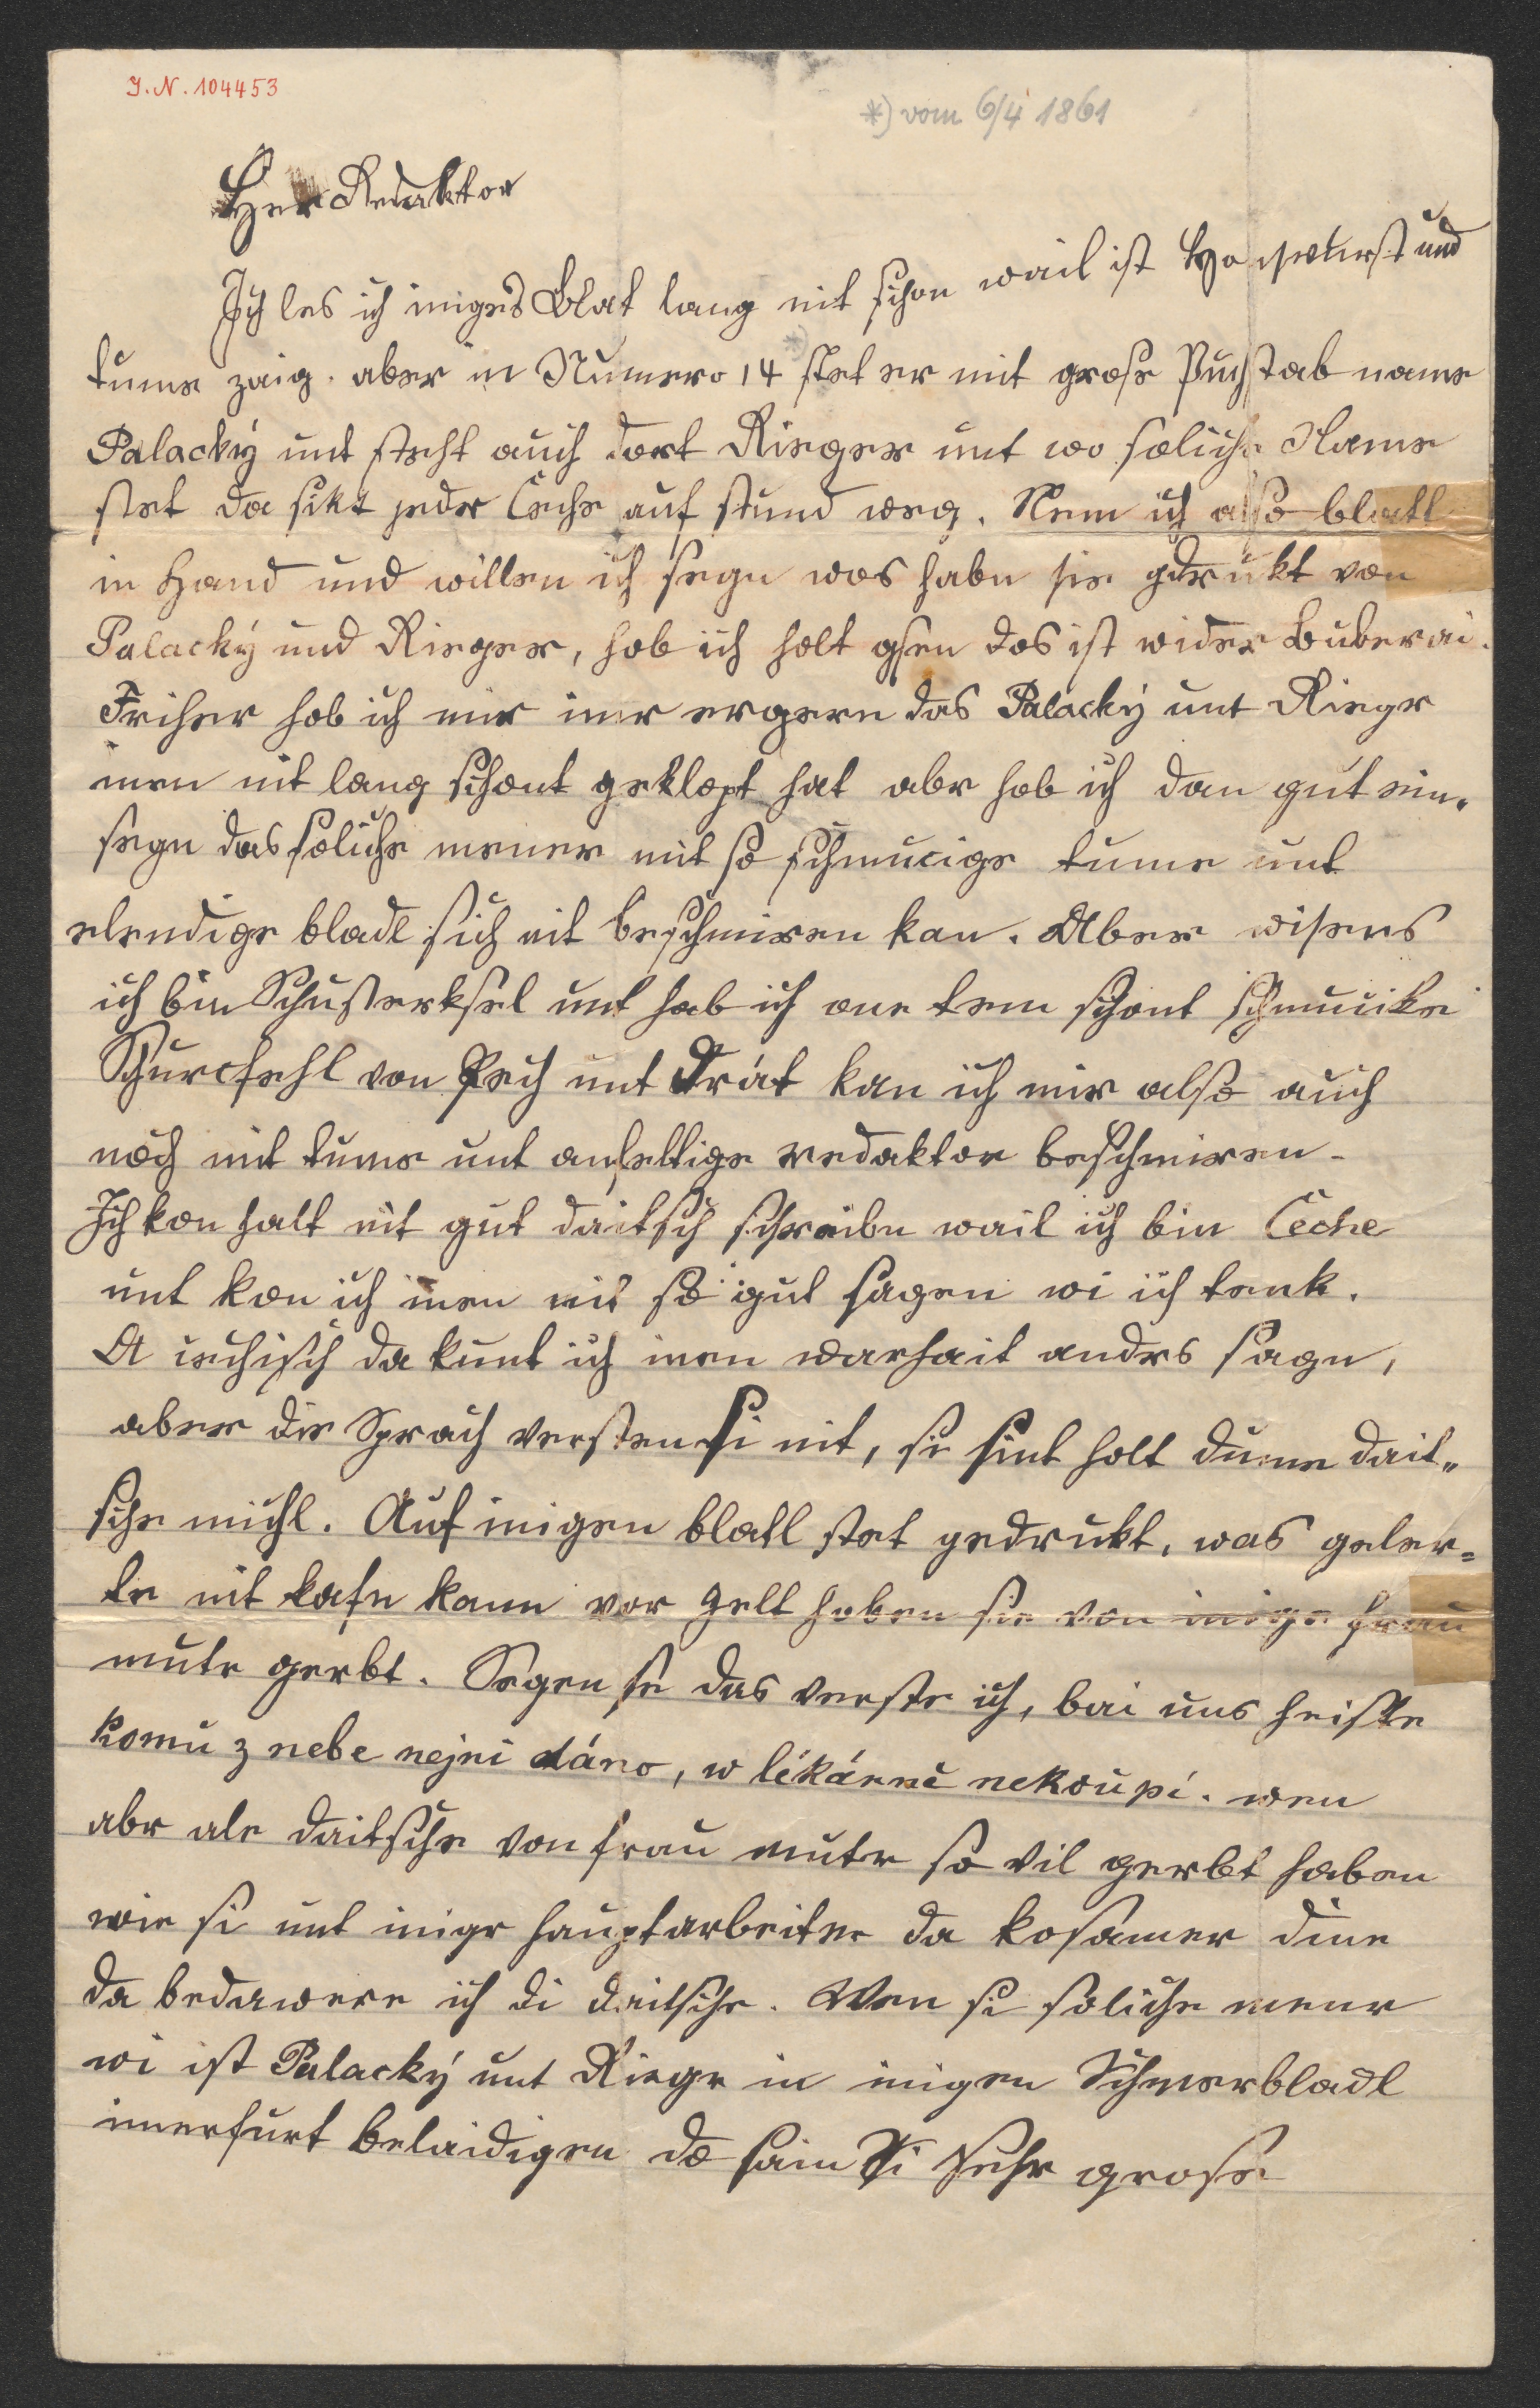 I. N. 104453
*) vom 6/4 1861
Her Redaktor
Ich les ich iniges Blat lang nit schon wail ist Hanswurst und
tume zaig. aber in Numero 14 *) stet er mit grose Puchstab name
Palacky unt steht auch dort Rieger unt wo soliche Name
stet da sikt jeder Čeche auf stund weg. Nem ich also blatl
in Hand und willen ich segn was habn sie gdrukt von
Palacky und Rieger, hob ich holt gsen das ist wider Buberai.
Friher hob ich mir imr ergern das Palacky unt Riegr
inen nit lang schont geklopt hat abr hob ich dan gut ein-
segn das soliche mener mit so schmucige tume unt
elendige bladl sich nit beschmiren kan. Aber wisens
ich bin Schusterksel unt hab ich one tem schont schmucike
Schurcfehl von Pech unt Drát kan ich mir also auch
noch mit tume unt anfeltige redaktor beschmiren.
Ich kon halt nit gut daitsch schraibn wail ich bin Čeche
unt kon ich inen nit so gut sagen wi ich tenk.
A cechisch da kunt ich inen warhait andrs sagn,
aber die Sprach versten si nit, si sint holt dume dait-
sche michl. Auf inigen blatl stet gedrukt, was geler-
te nit kafn kann vor gelt haben sie von inige frau
mutr gerbt. Segen se das verste ich, bai uns heiste
komu z nebe nejni dáno, w lékárně nekoupí. wen
abr ale daitsche von frau mutr so vil gerbt haben
wie si unt inige hauptarbeiter da kosamer dine
da bedawere ich di daitsche. Wen si soliche menr
wi ist Palacky unt Riegr in inigen Schmerbladl
imerfurt belaidigen do sain Si sehr grose